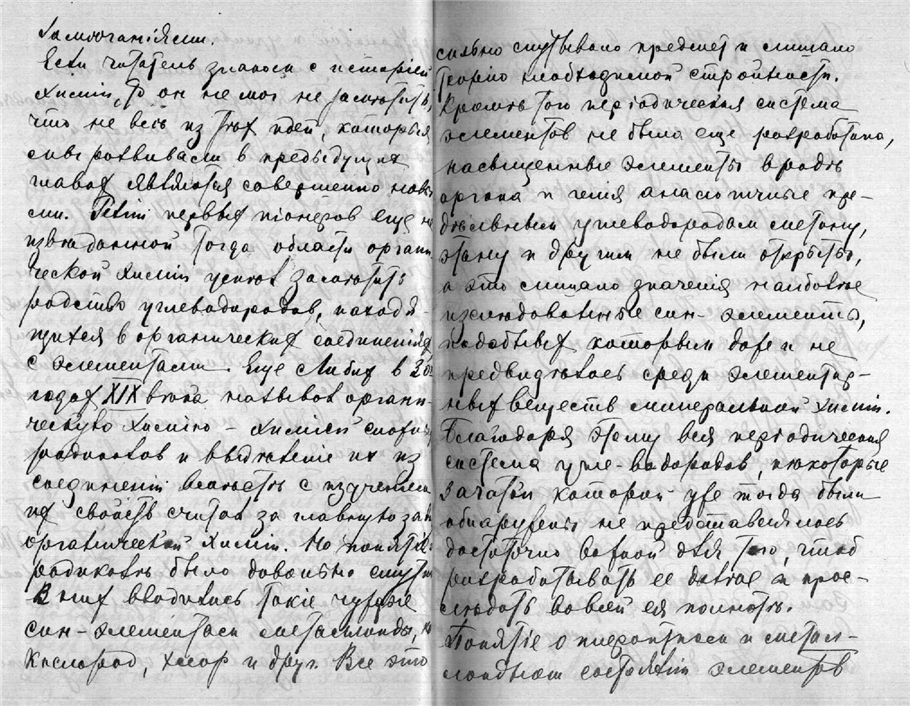 Если читатель знаком с исторіей
химіи, то он не мог не замѣтить,
что не весь из тѣх идей, которыя
мы развивали в предыдущих
главах являются совершенно новы
ми. Гений первых піонеров еще не
извѣданной тогда области органи
ческой химіи успѣл замѣтить
родство углеводородов, находя-
щихся в органических соединеніях
с элементами. Еще Либих в 30ых
годах XIX вѣка называл органи
ческую химію - химіей сложных
радикалов и выдѣленіе их из
соединеній вмѣстѣ с изученіем
их свойств считал за главную зад
органической химіи. Но понятіе
радикалъ было довольно смутн
В них вводились такіе чуждые
син-элементам металлоиды, как
кислород, хлор и друг. Все это
сильно спутывало предмет и лишало
теорію необходимой стройности.
Кромѣ того періодическая система
элементов не была еще разработана,
насыщенные элементы вродѣ
аргона и гелія аналогичные пре-
дѣльным углеводородам метану,
этану и другим не были открыты,
а это лишало значенія наиболѣе
изслѣдованные син-элементы,
подобных которым даже и не
предвидѣлось среди элементар-
ных веществ минеральной химіи.
Благодаря этому вся періодическая
система угле-водородов, нѣкоторые
зачатки которой уже тогда были
обнаружены не представлялось
достаточно важной для того, чтоб
разработывать ее далѣе и прос-
лѣдить во всей ея полнотѣ.
Понятіе о
состояніи элементов